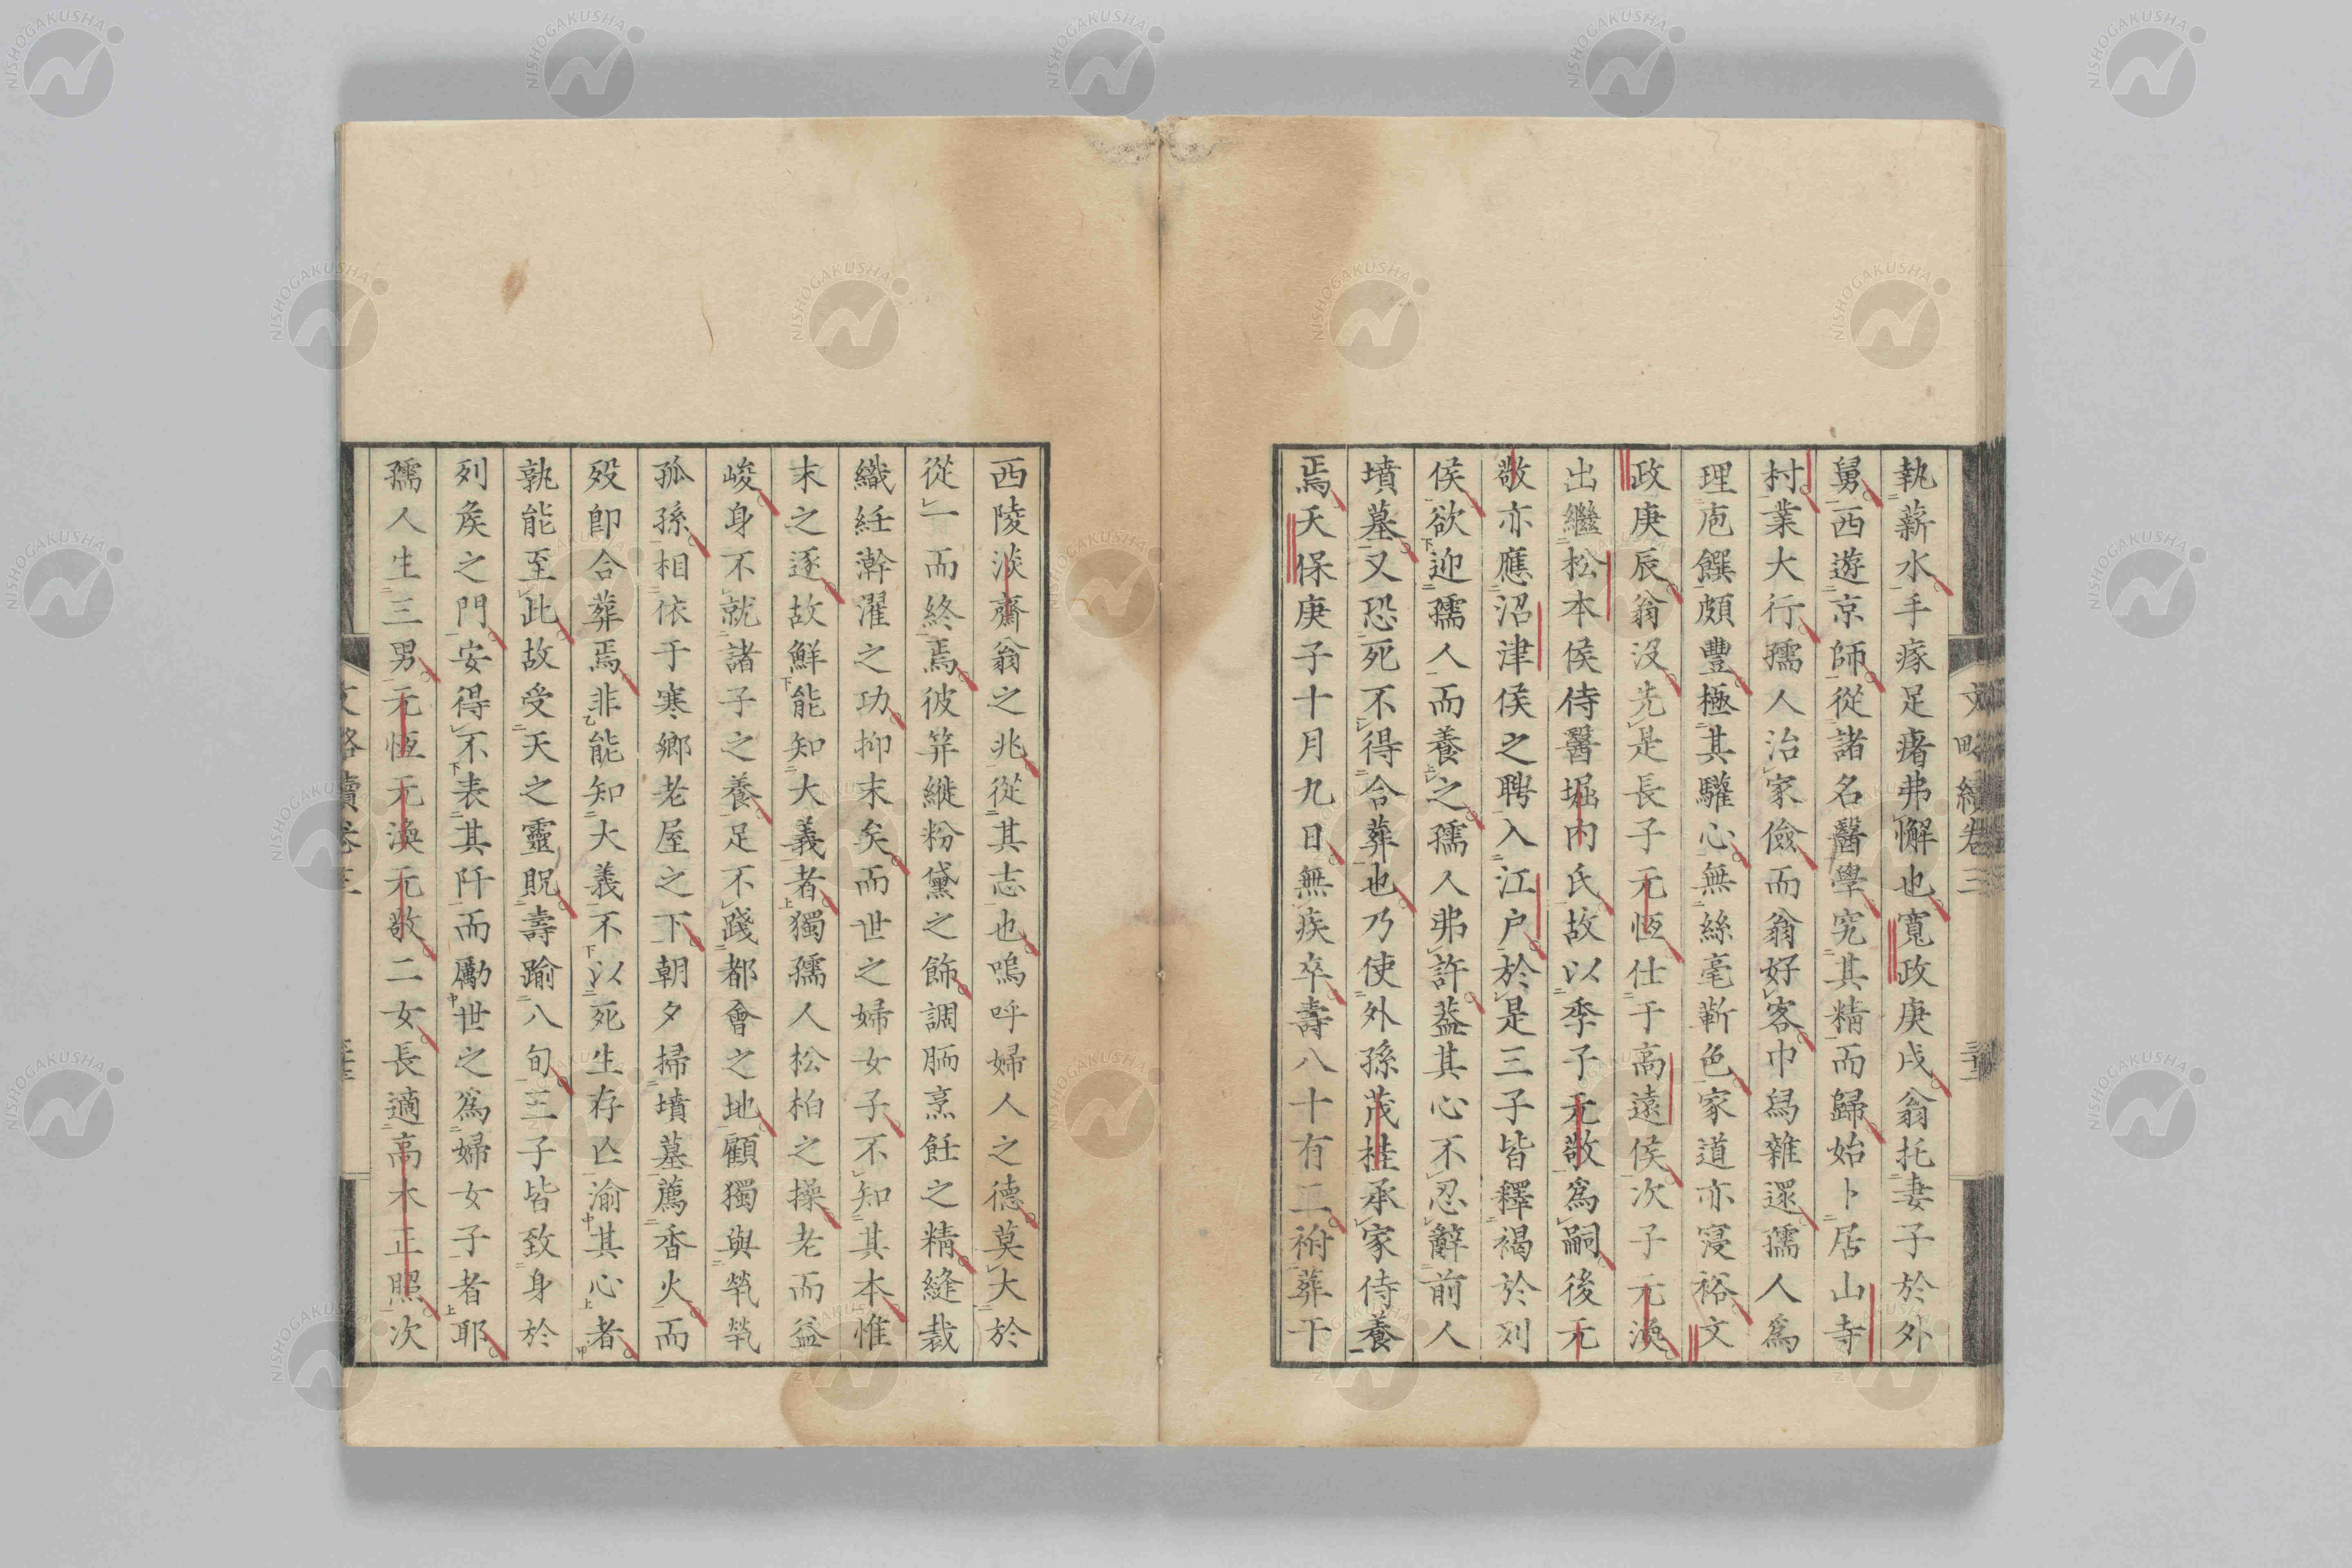 執薪水手瘃足瘏弗懈也寬政庚戌翁托妻子於外
舅西遊京師從諸名醫學究其精而歸始卜居山寺
村業大行孺人治家儉而翁好客巾舄雜還孺人爲
理庖饌頗豐極其驩心無絲毫靳色家道亦寖裕文
政庚辰翁沒先是長子元恆仕于高遠侯次子元渙
出繼松本侯侍醫堀內氏故以季子元敬爲嗣後元
敬亦應沼津侯之聘入江戶於是三子皆釋褐於列
侯欲迎孺人而養之孺人弗許蓋其心不忍辭前人
墳墓又恐死不得合葬也乃使外孫茂桂承家侍養
焉天保庚子十月九日無疾卒壽八十有二祔葬于
文略續卷三
西陵淡齋翁之兆從其志也嗚呼婦人之德莫大於
從一而終焉彼笄縰粉黛之飾調胹烹飪之精縫裁
織紝澣濯之功抑末矣而世之婦女子不知其本惟
末之逐故鮮能知大義者獨孺人松柏之操老而益
峻身不就諸子之養足不踐都會之地顧獨與煢煢
孤孫相依于寒鄉老屋之下朝夕掃墳墓薦香火而
歿卽合葬焉非能知大義不以死生存亡渝其心者
孰能至此故受天之靈貺壽踰八旬三子皆致身於
列矦之門安得不表其阡而勵世之爲婦女子者耶
孺人生三男元恆元渙元敬二女長適高木正照次
文略續卷三